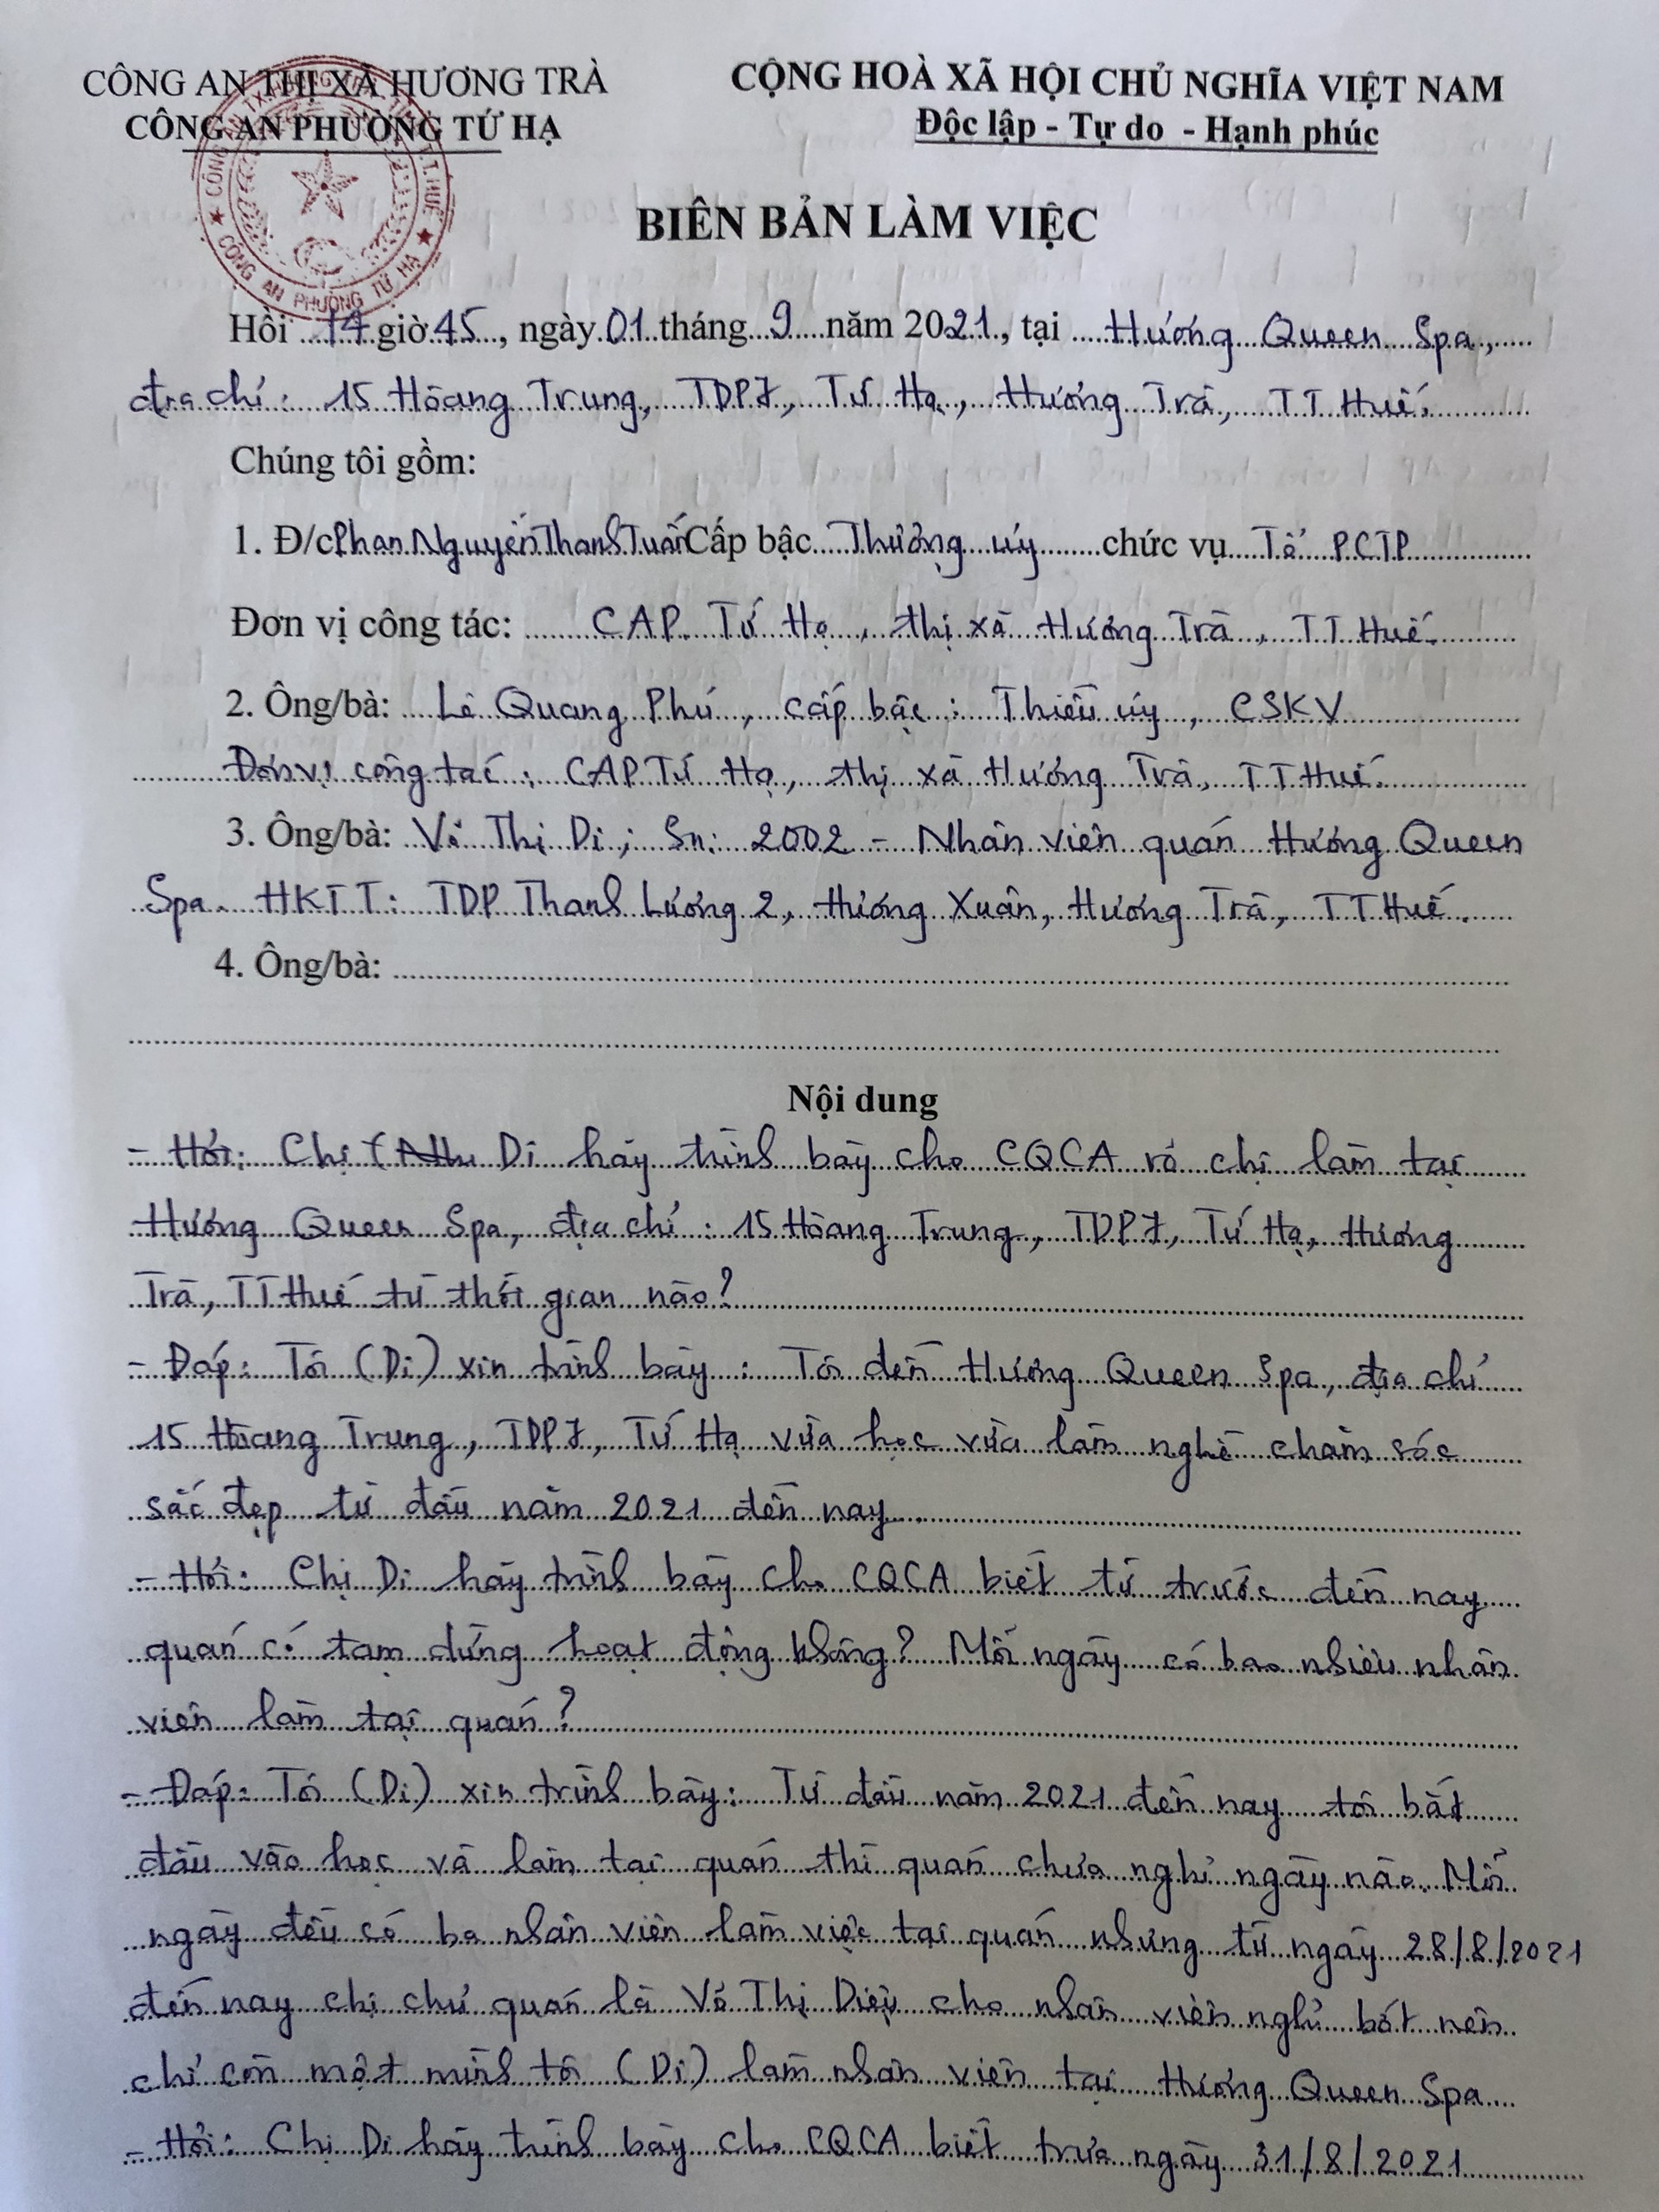 CÔNG AN THỊ XÃ HƯƠNG TRÀ
CÔNG AN PHƯỜNG TỨ HẠ
CỘNG HOÀ XÃ HỘI CHỦ NGHĨA VIỆT NAM
Độc lập - Tự do - Hạnh phúc
CÔNG AN PHƯỜNG TỨ HẠ
BIÊN BẢN LÀM VIỆC
Hồi 14 giờ 45, ngày 01 tháng 9 năm 2021, tại Hương Queen Spa,
địa chỉ: 15 Hoàng Trung, TDP7, Tứ Hạ, Hương Trà, TT Huế.
Chúng tôi gồm:
1. Đ/c Phan Nguyễn Thanh Tuấn Cấp bậc Thượng úy chức vụ Tổ PCTP
Đơn vị công tác: CAP. Tứ Hạ, thị xã Hương Trà, TT Huế.
2. Ông/bà: Lê Quang Phú, cấp bậc: Thiếu úy, CSKV
Đơn vị công tác: CAP Tứ Hạ, thị xã Hương Trà, TT Huế.
3. Ông/bà: Võ Thị Di; Sn: 2002 - Nhân viên quán Hương Queen
Spa. HKTT: TDP Thanh Lương 2, Hương Xuân, Hương Trà, TT Huế.
4. Ông/bà:
Nội dung
- Hỏi: Chị Di hãy trình bày cho CQCA rõ chị làm tại
Hương Queen Spa, địa chỉ: 15 Hoàng Trung, TDP7, Tứ Hạ, Hương
Trà, TT Huế từ thời gian nào?
- Đáp: Tôi (Di) xin trình bày: Tôi đến Hương Queen Spa, địa chỉ
15 Hoàng Trung, TDP7, Tứ Hạ vừa học vừa làm nghề chăm sóc
sắc đẹp từ đầu năm 2021 đến nay.
- Hỏi: Chị Di hãy trình bày cho CQCA biết từ trước đến nay
quán có tạm dừng hoạt động không? Mỗi ngày có bao nhiêu nhân
viên làm tại quán?
- Đáp: Tôi (Di) xin trình bày: Từ đầu năm 2021 đến nay tôi bắt
đầu vào học và làm tại quán thì quán chưa nghỉ ngày nào. Mỗi
ngày đều có ba nhân viên làm việc tại quán nhưng từ ngày 28/8/2021
đến nay chị chủ quán là Võ Thị Diệu cho nhân viên nghỉ bớt nên
chỉ còn một mình tôi (Di) làm nhân viên tại Hương Queen Spa
- Hỏi: Chị Di hãy trình bày cho CQCA biết trưa ngày 31/8/2021